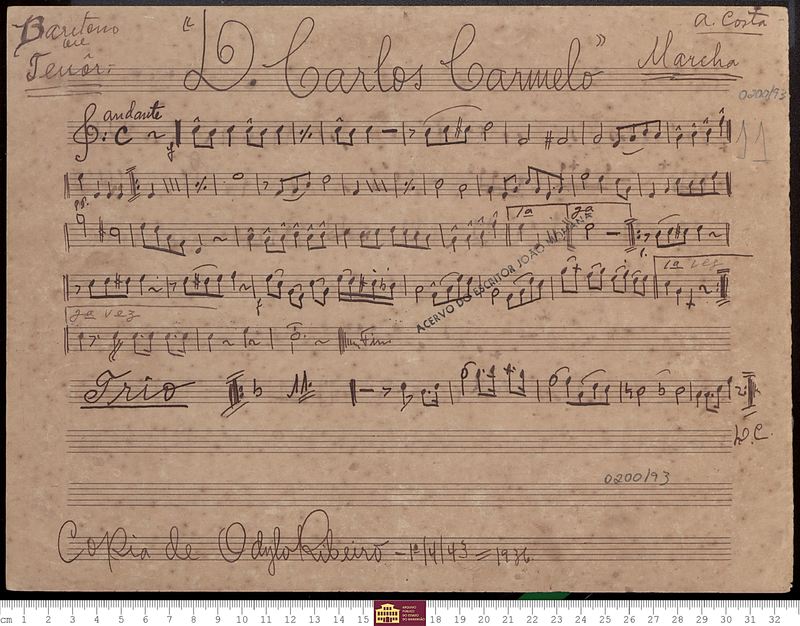 Baritono
ou
Tenôr:
"D. Carlos Carmelo"
A. Costa
Marcha
0200/93
andante
11
1a 2a
ACERVO DO ESCRITOR JOÃO MOHANA
1a vez
2a vez
Fim
Trio
D.C.
0200/93
Copia de Odylo Ribeiro – 1º/4/43 = 1936
cm 1 2 3 4 5 6 7 8 9 10 11 12 13 14 15 18 19 20 21 22 23 24 25 26 27 28 29 30 31 32
ARQUIVO PÚBLICO DO ESTADO DO MARANHÃO